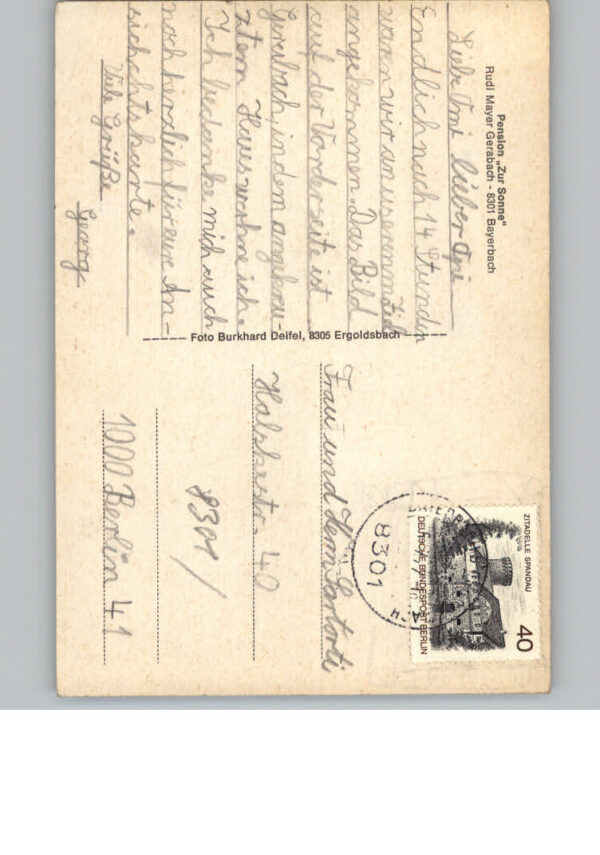 Pension „Zur Sonne"
Rudi Mayer Gerabach - 8301 Bayerbach
Liebe Omi lieber Opi
Endlich nach 14 Stunden
waren wir an unserem Ziel
angekommen. Das Bild
auf der Vorderseite ist
Gerabach, in dem angekreu-
ztem Haus wohne ich.
Ich bedanke mich auch
noch herzlich für eure An-
sichchtskarte.
Viele Grüße
Georg
Foto Burkhard Deifel, 8305 Ergoldsbach
ZITADELLE SPANDAU
40
DEUTSCHE BUNDESPOST BERLIN
8301
Frau und Herrn
Halskestr. 40
8301/
1000 Berlin 41